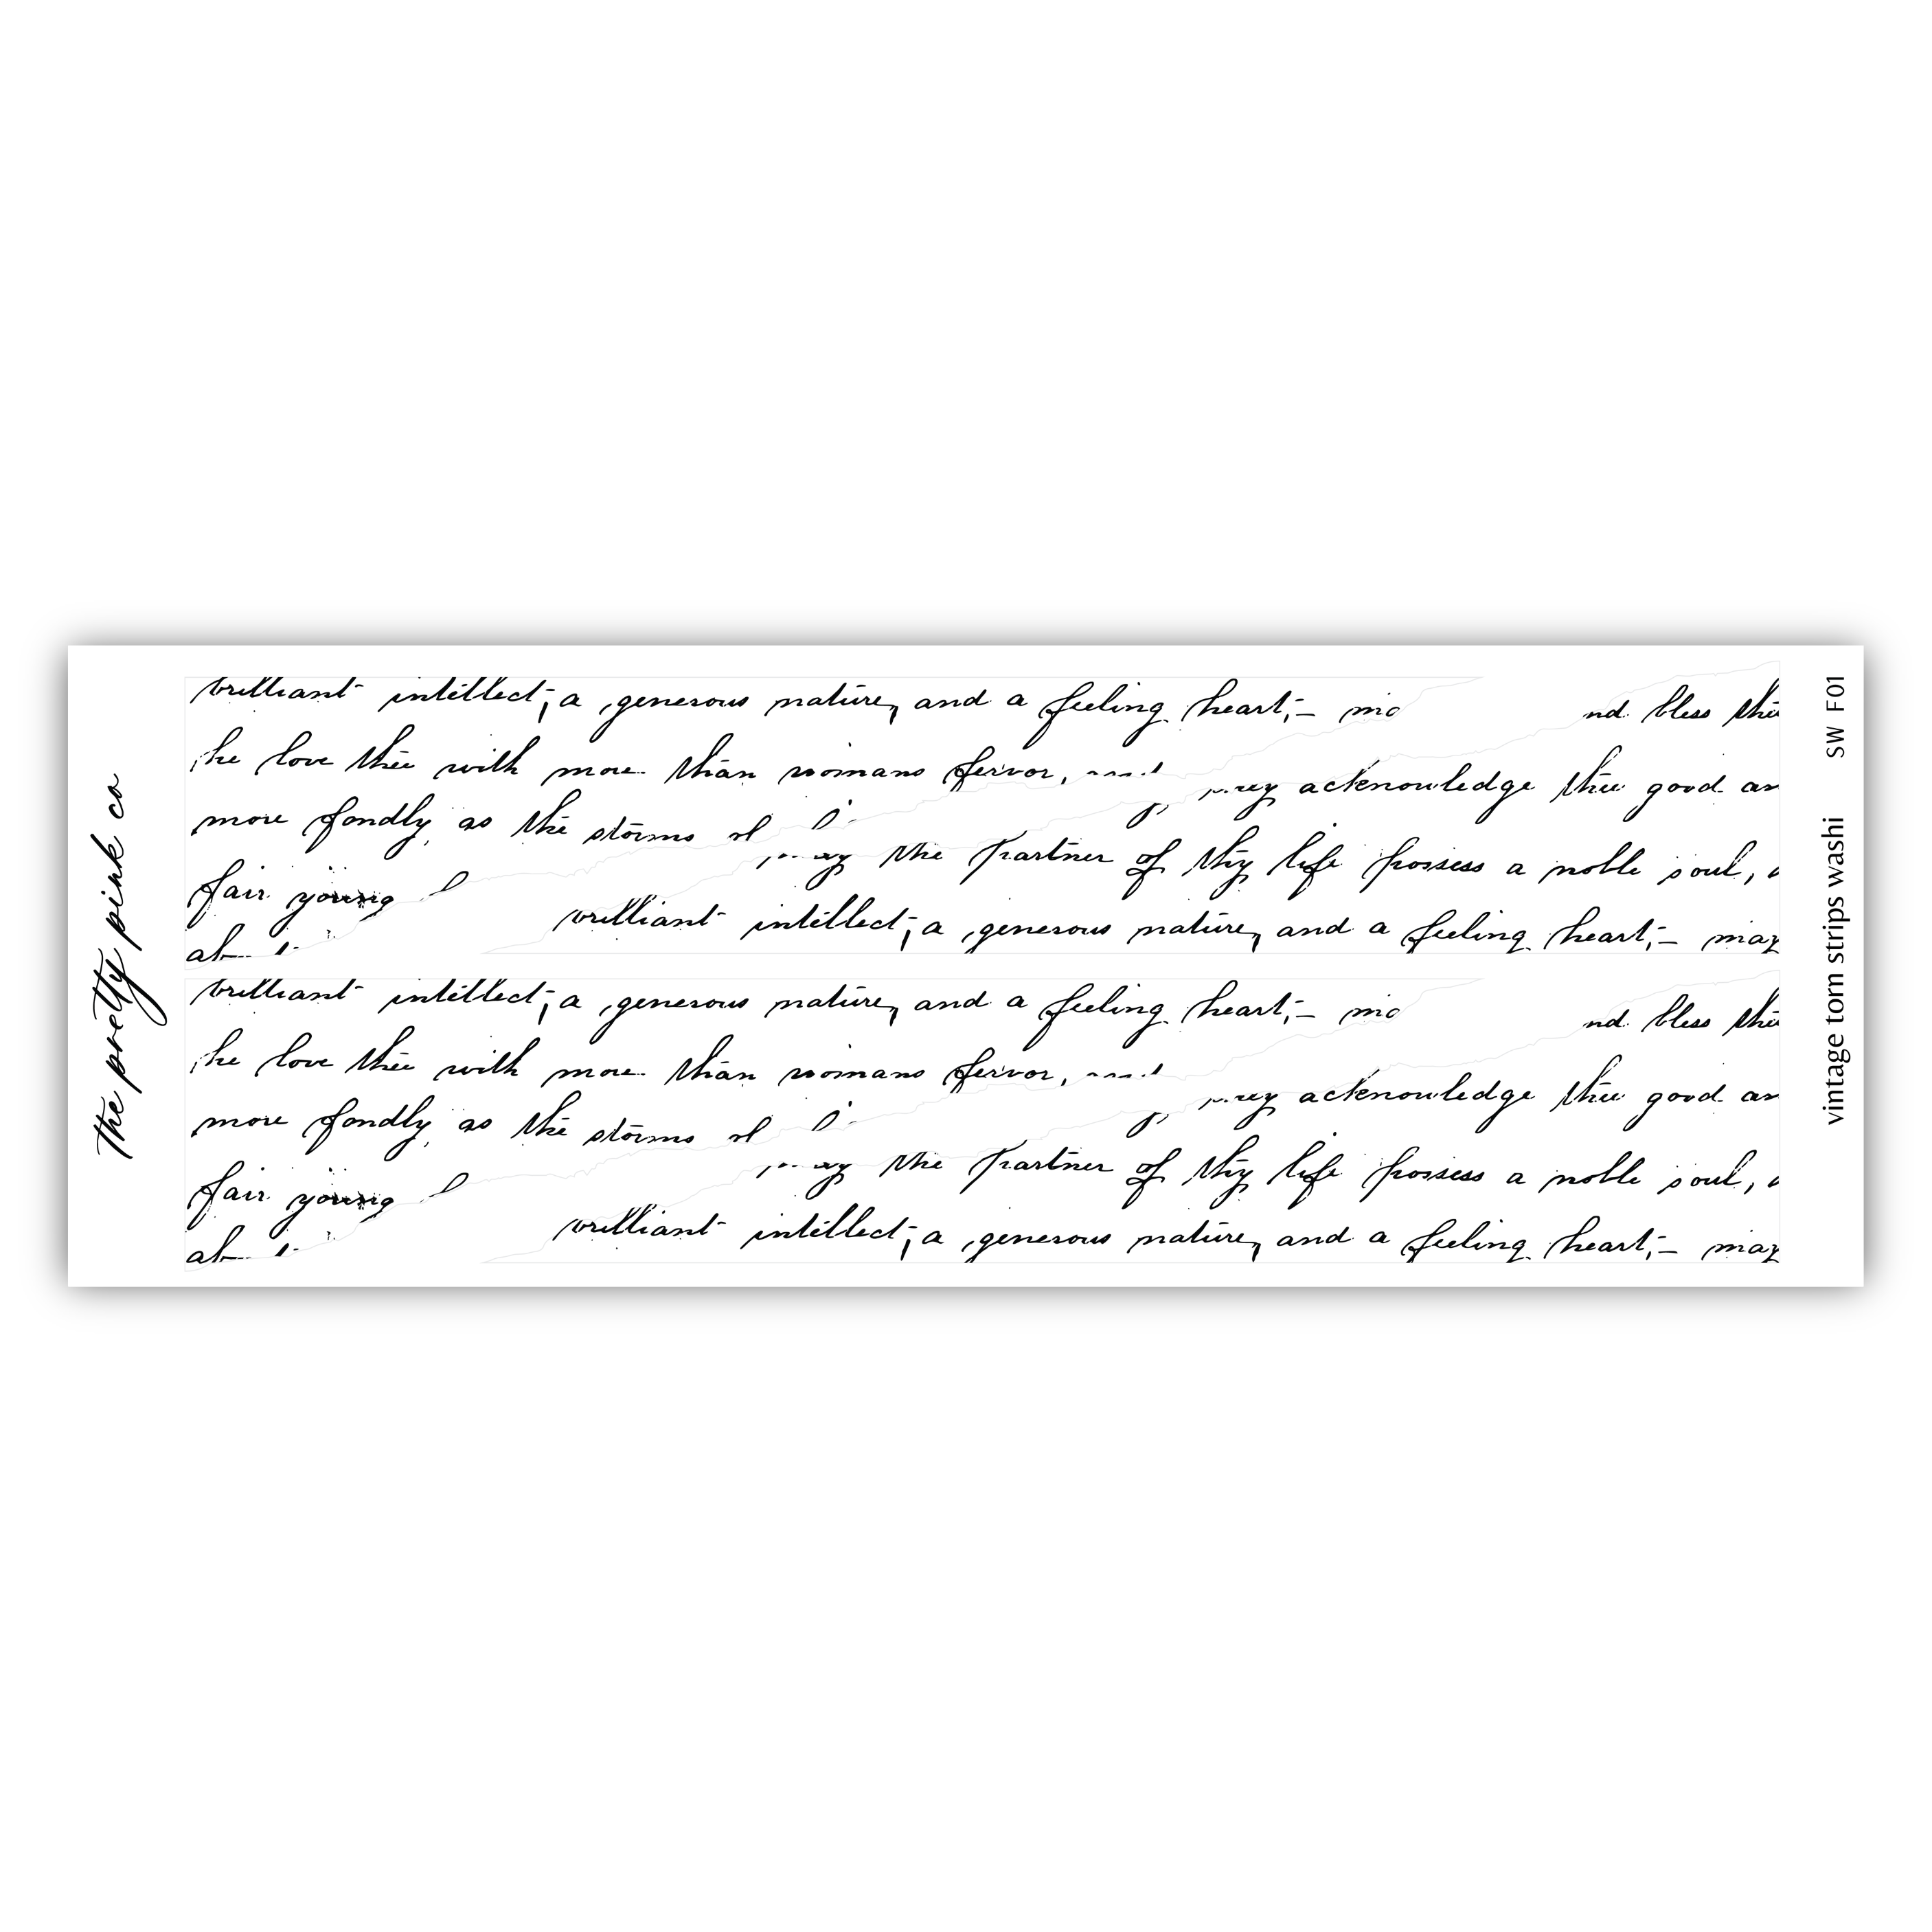 the pretty pink co
brilliant intellect; a generous nature, and a feeling heart;— 
nd bless the
he love thee with more than womans fervor,
acknowledge thee good an
more fondly as the storms
the partner of thy life possess a noble soul,
fair young
brilliant intellect; a generous nature, and a feeling heart;— may
brilliant intellect; a generous nature, and a feeling heart;—
nd bless the
he love thee with more than womans fervor,
acknowledge thee good an
more fondly as the storms
the partner of thy life possess a noble soul,
fair young
brilliant intellect; a generous nature, and a feeling heart;— may
vintage torn strips washi SW F01